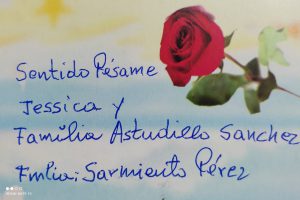 Sentido Pésame
Jessica y
Familia Astudillo Sanchez
Fmlia: Sarmiento Pérez